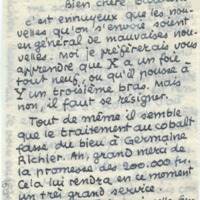 Bien chère
c'est ennuyeux que les nou-
velles qu'on s'envoie soient
en général de mauvaises nou-
velles. Moi je préférerais vous
apprendre que X a un foie
tout neuf, ou qu'il pousse à
Y un troisième bras. Mais
non, il faut se résigner.
Tout de même il semble
que le traitement au cobalt
fasse du bien à Germaine
Richier. Ah, grand merci de
la promesse des 200.000 frs.
Cela lui rendra en ce moment
un très grand service.